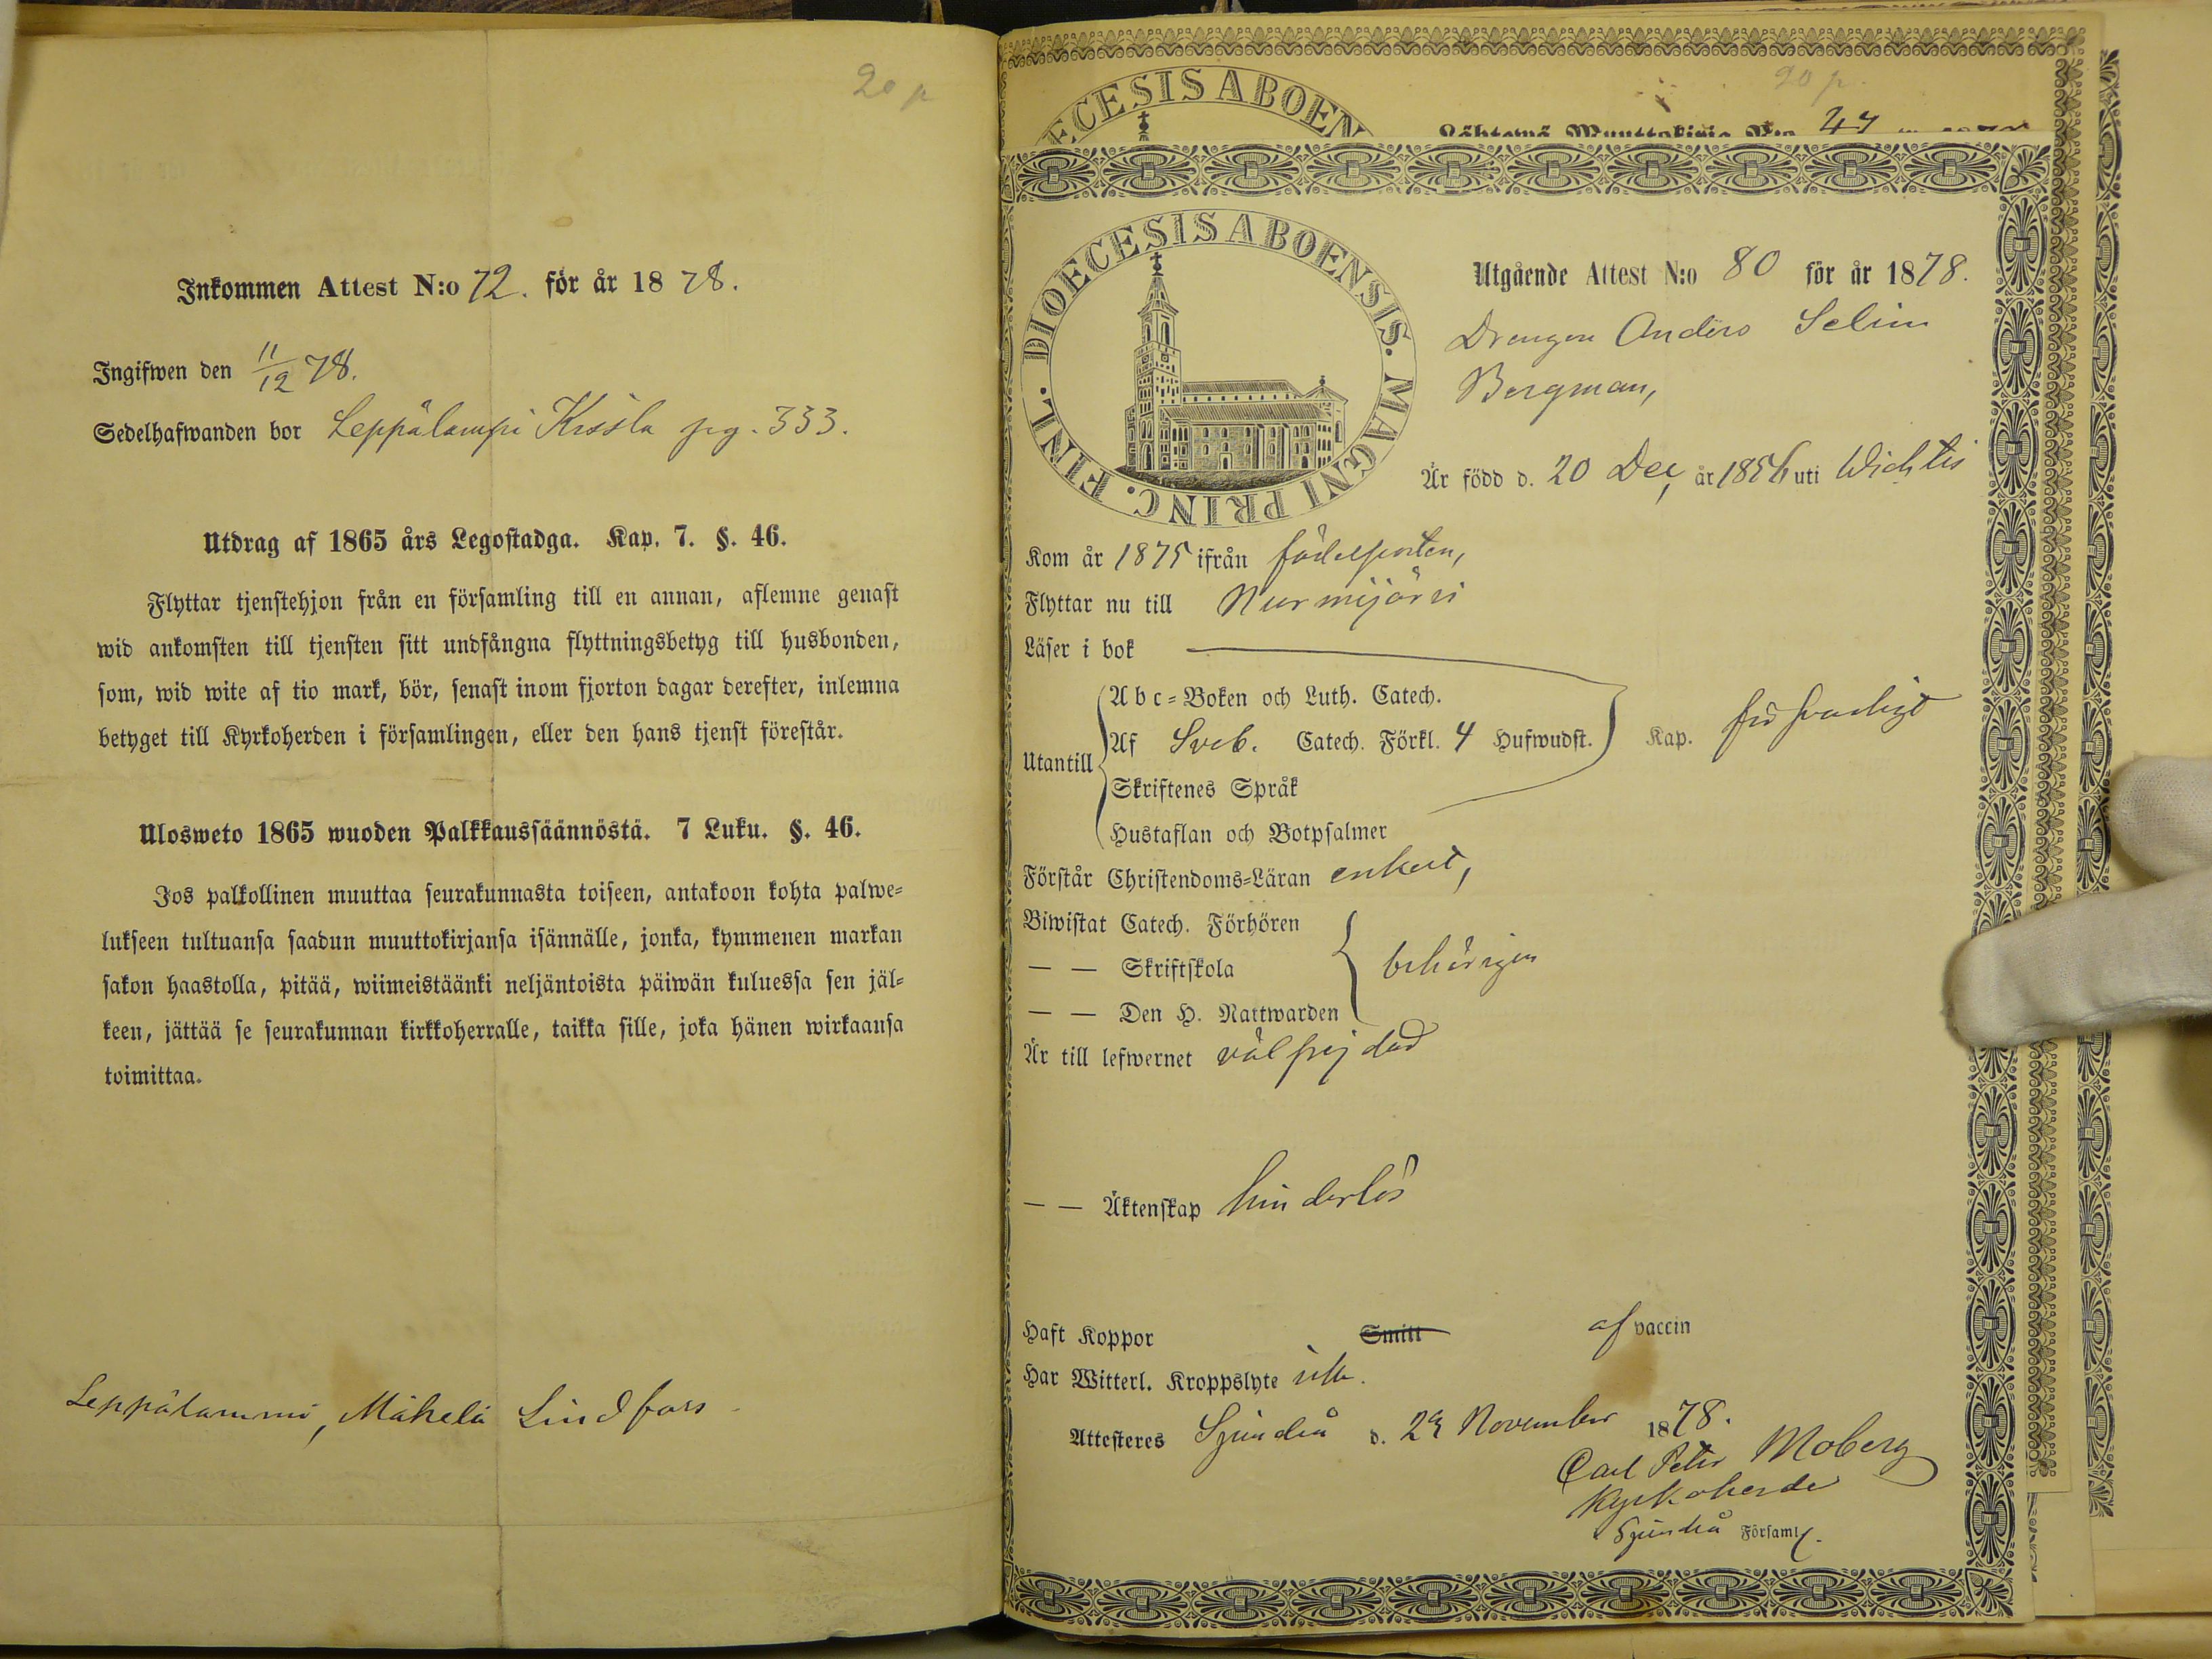 20 p
Inkommen Attest N:o 72. för år 1878.
Ingifwen den 11/12 78.
Sedelhafwanden bor Leppälampi Kissla pag. 333.
Utdrag af 1865 års Legostadga. Kap. 7. §. 46.
Flyttar tjenstehjon från en församling till en annan, aflemne genast
wid ankomsten till tjensten sitt undfångna flyttningsbetyg till husbonden,
som, wid wite af tio mark, bör, senast inom fjorton dagar derefter, inlemna
betyget till Kyrkoherden i församlingen, eller den hans tjenst förestår.
Ulosweto 1865 wuoden Palkkaussäännöstä. 7 Luku. §. 46.
Jos palkollinen muuttaa seurakunnasta toiseen, antakoon kohta palwe=
lukseen tultuansa saadun muuttokirjansa isännälle, jonka, kymmenen markan
sakon haastolla, pitää, wiimeistäänki neljäntoista päiwän kuluessa sen jäl=
keen, jättää se seurakunnan kirkkoherralle, taikka sille, joka hänen wirkaansa
toimittaa.
Leppälammi, Mäkelä Lindfors
20 p.
DIOECESIS ABOEN
Lähtewä Muuttokirja N:o 47
DIOECESIS ABOENSIS. MAGNI PRINC. FINL.
Utgående Attest N:o 80 för år 1878.
Drengen Anders Selim
Bergman,
Är född d. 20 Dec, år 1856 uti Wichtis
Kom år 1875 ifrån födelseorten,
Flyttar nu till Nurmijärvi
Läser i bok
Utantill
Abc=Boken och Luth. Catech.
Af Sveb. Catech. Förkl. 4 Hufwudst. Kap. försvarligt
Skriftenes Språk
Hustaflan och Botpsalmer
Förstår Christendoms=Läran enkelt,
Biwistat Catech. Förhören
— — Skriftskola behörigen
— — Den H. Nattwarden
Är till lefwernet välfrejdad
— — Äktenskap hinderlös
Haft Koppor Smitt af vaccin
Har Witterl. Kroppslyte icke.
Attesteres Sjundeå d. 29 November 1878.
Carl Peter Moberg
Kyrkoherde
i Sjundeå Församl.